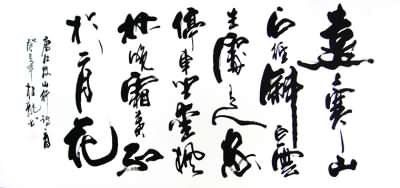 遠上寒山
石徑斜白雲
生處有人家
停車坐愛楓
林晚霜葉紅
於二月花
唐杜牧山行詩一首
年書